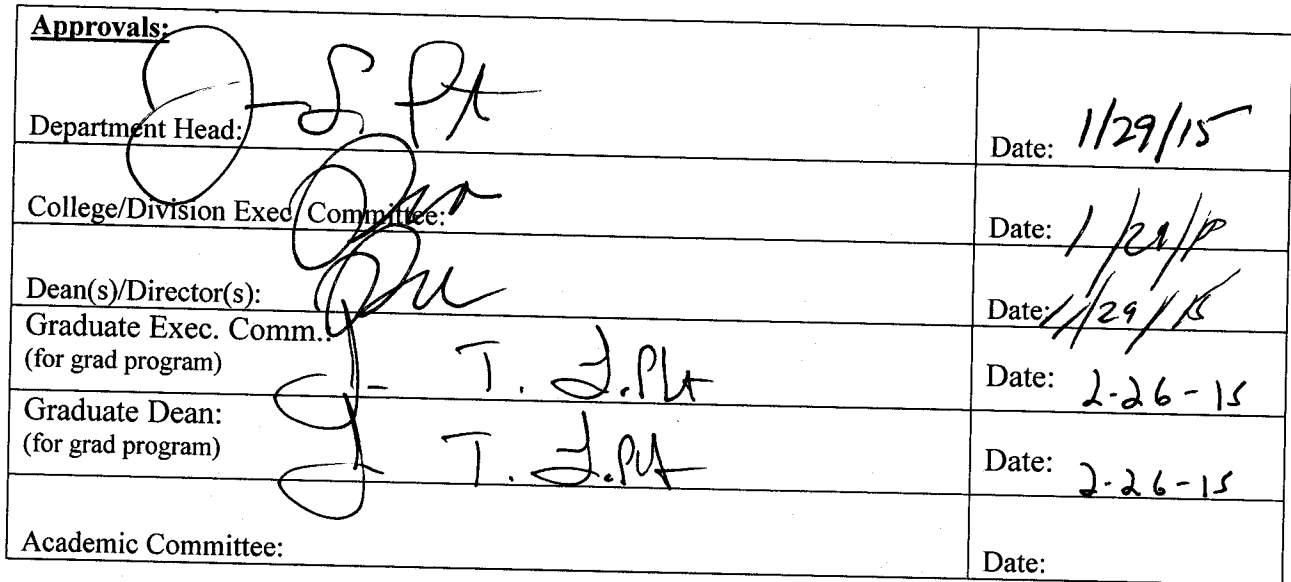 Approvals:
Department Head: Date: 1/29/15
College/Division Exec. Committee: Date:
Dean(s)/Director(s): Date: 1/29/15
Graduate Exec. Comm.:
(for grad program) Date: 2-26-15
Graduate Dean:
(for grad program) Date: 2-26-15
Academic Committee: Date: